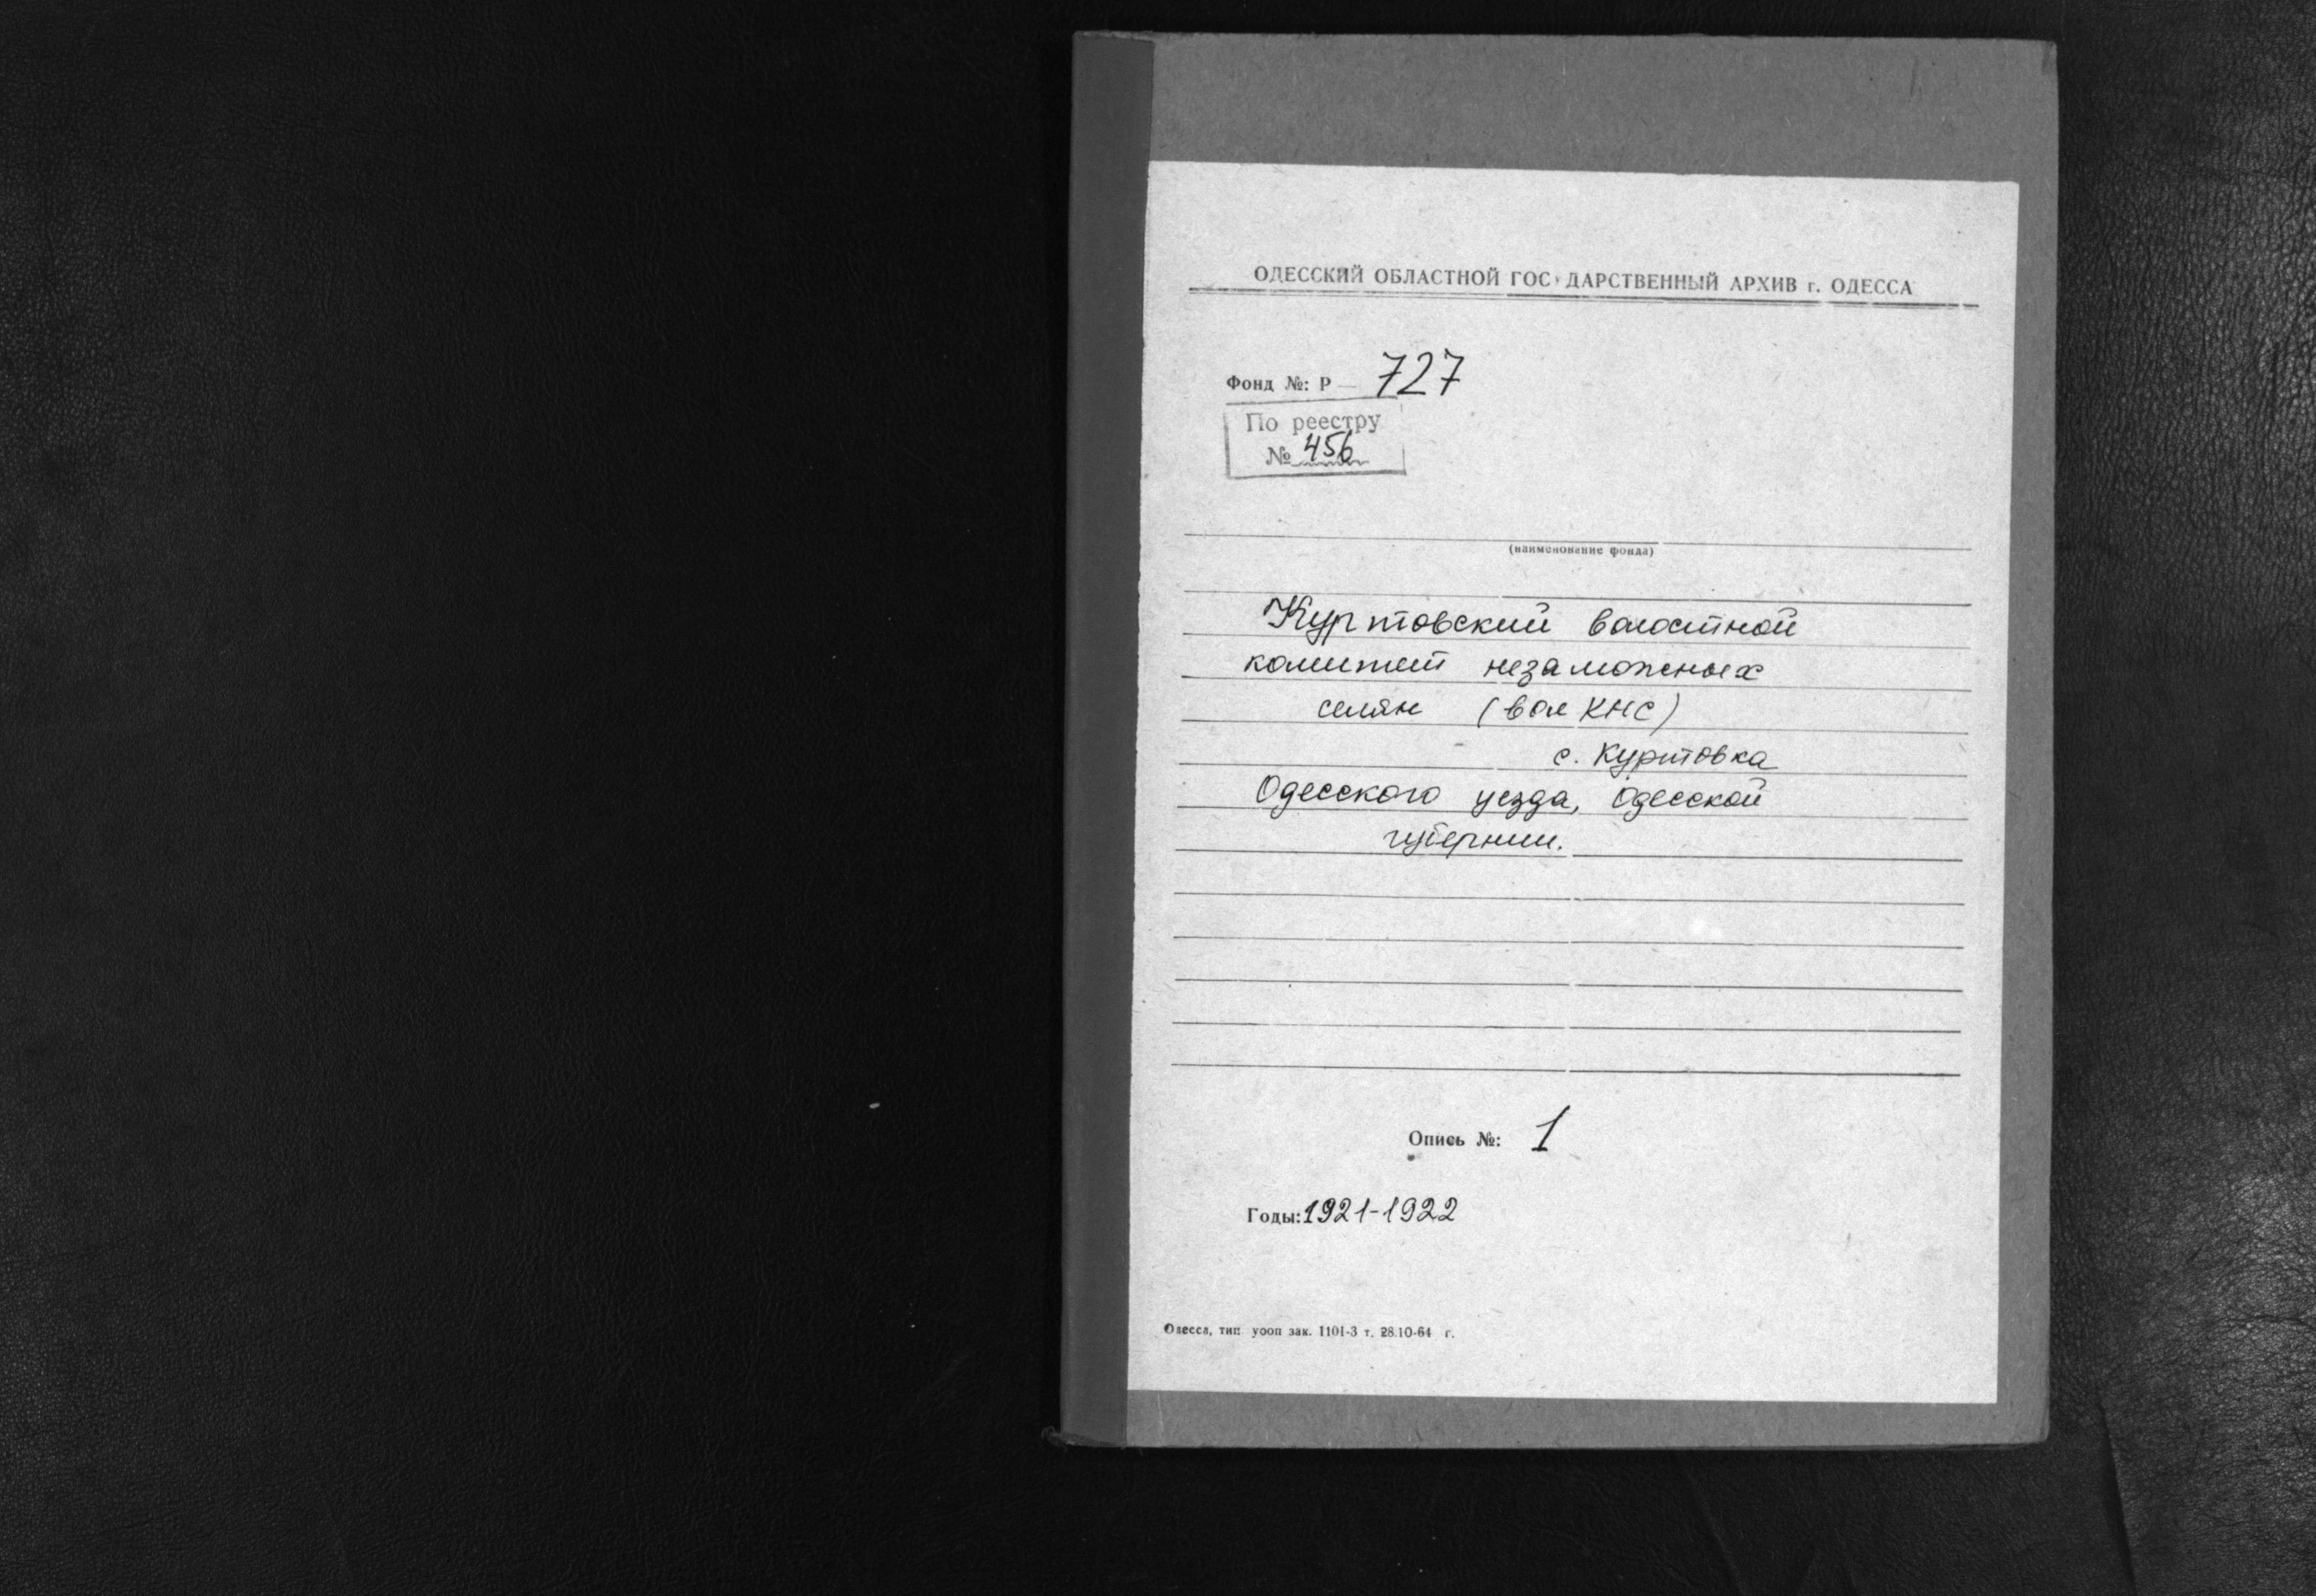 ОДЕССКИЙ ОБЛАСТНОЙ ГОС ДАРСТВЕННЫЙ АРХИВ г. ОДЕССА
Фонд №: Р — 727
По реестру
№ 456
(наименование фонда)
Куртовский волостной
комитет незаможных
селян (вол КНС)
с. Куртовка
Одесского уезда, Одесской
губернии.
Опись №: 1
Годы: 1921-1922
Одесса, тип. уооп зак. 1101-3 т. 28.10-64 г.